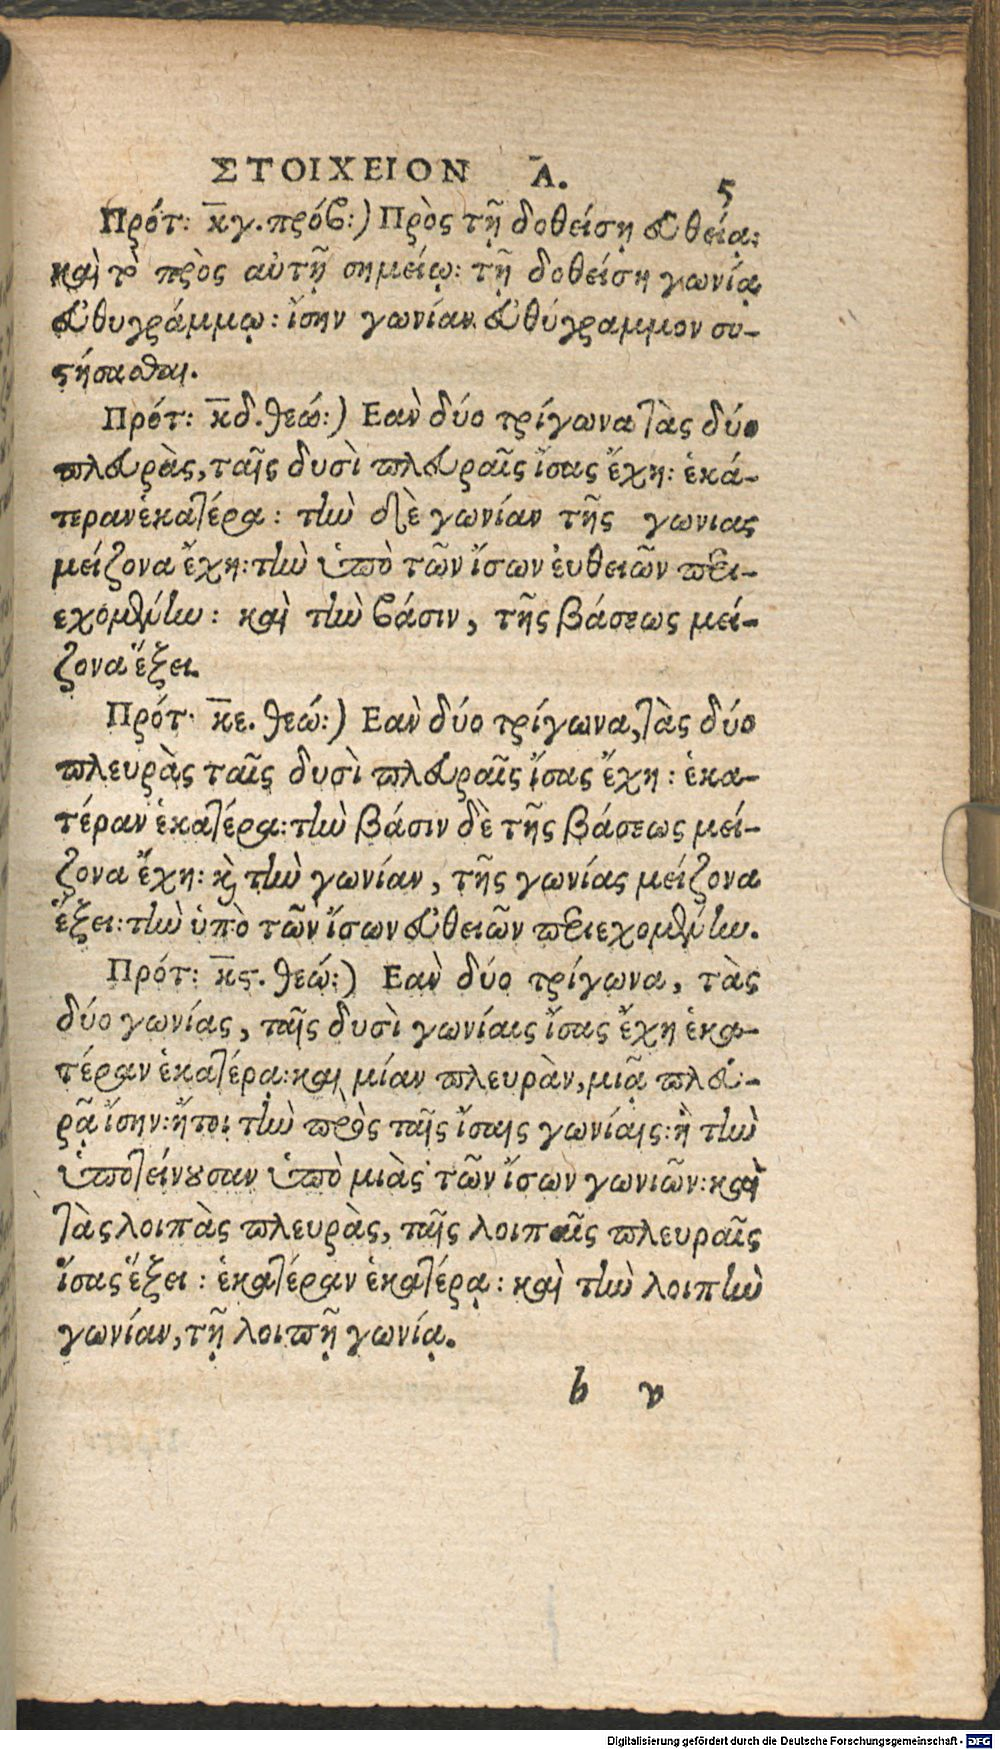 ΣΤΟΙΧΕΙΟΝ Α. 5
Πρότ: κγ. πρόβ:) Πρὸς τῇ δοθείσῃ εὐθείᾳ:
καὶ τῷ πρὸς αὐτῇ σημείῳ: τῇ δοθείση γωνίᾳ
εὐθυγράμμῳ: ἴσην γωνίαν εὐθύγραμμον συ-
στήσασθαι.
Πρότ: κδ. θεώ:) Εαν δύο τρίγωνα τὰς δύο
πλευρὰς, ταῖς δυσὶ πλευραῖς ἴσας ἔχη: ἑκά-
τεραν ἑκατέρα: τὴν δὲ γωνίαν τῆς γωνιας
μείζονα ἔχη: τὴν ὑπὸ τῶν ἴσων ἐυθειῶν περι-
εχομένην: καὶ τὴν βάσιν, τῆς βάσεως μεί-
ζονα ἕξει.
Πρότ· κε. θεώ:) Εαν δύο τρίγωνα, τὰς δύο
πλευρὰς ταῖς δυσὶ πλευραῖς ἴσας ἔχη: ἑκα-
τέραν ἑκατέρα: τὴν βάσιν δὲ τῆς βάσεως μεί-
ζονα ἔχη: καὶ τὴν γωνίαν, τῆς γωνίας μείζονα
ἕξει: τὴν ὑπὸ τῶν ἴσων εὐθειῶν περιεχομένην.
Πρότ: κς. θεώ:) Εαν δύο τρίγωνα, τὰς
δύο γωνίας, ταῖς δυσὶ γωνίαις ἴσας ἔχη ἑκα-
τέραν ἑκατέρᾳ: και μίαν πλευρὰν, μιᾷ πλευ-
ρᾷ ἴσην: ἤτοι τὴν πρὸς ταῖς ἴσαις γωνίαις: ἢ τὴν
ὑποτείνουσαν ὑπὸ μιὰς τῶν ἴσων γωνιῶν: καὶ
τὰς λοιπὰς πλευρὰς, ταῖς λοιπαῖς πλευραῖς
ἴσας ἕξει: ἑκατέραν ἑκατέρᾳ: καὶ τὴν λοιπὴν
γωνίαν, τῇ λοιπῇ γωνίᾳ.
b v
Digitalisierung gefördert durch die Deutsche Forschungsgemeinschaft - DFG